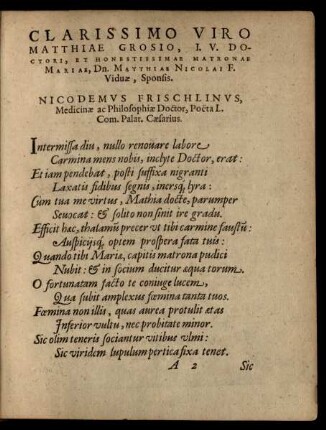 CLARISSIMO VIRO
MATTHIAE GROSIO, I. V. DO-
CTORI, ET HONESTISSIMAE MATRONAE
MARIAE, Dn. MATTHIAE NICOLAI F.
Viduæ, Sponsis.
NICODEMVS FRISCHLINVS,
Medicinæ ac Philosophiæ Doctor, Poëta L.
Com. Palat. Cæsarius.
Intermissa diu, nullo renouare labore
Carmina mens nobis, inclyte Doctor, erat:
Et iam pendebat, posti suffixa nigranti
Laxatis fidibus segnis, inersq́ lyra:
Cum tua me virtus, Mathia docte, parumper
Seuocat: & solito non sinit ire gradu.
Efficit hæc, thalamū precer vt tibi carmine faustū:
Auspicijsq́ optem prospera fata tuis:
Quando tibi Maria, capitis matrona pudici
Nubit: & in socium ducitur æqua torum.
O fortunatam facto te coniuge lucem,
Qua subit amplexus fœmina tanta tuos.
Fœmina non illis, quas aurea protulit ætas
Inferior vultu, nec probitate minor.
Sic olim teneris sociantur vitibus vlmi:
Sic viridem lupulum pertica fixa tenet.
A 2 Sic